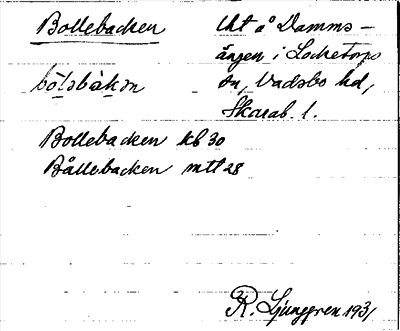 Bollebacken
lht å Damms-
ängen i Locketorps
sn, Vadsbo hd,
Skarab. l.
bòl₂ebàkən
Bollebacken kb 30
Bållebacken mtl 28
R. Ljunggren 1931